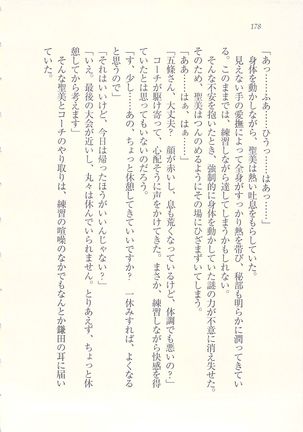 178
「あっ……ふあ……ひうっ……はあっ……」
身体を動かしながら、聖美は熱い吐息をもらしていた。
見えない手の愛撫によって全身がすっかり熱を帯び、秘部も明らかに潤ってきてい
る。このままでは、練習しながら達してしまうかもしれない。
そんな不安を抱いたとき、強制的に身体を動かしていた謎の力が不意に消え失せた。
そのため、聖美はつんのめるようにその場にひざまずいてしまう。
「ああ……はぁ、はぁ……」
「五條さん、大丈夫？　顔が赤いし、息も荒くなっているけど、体調でも悪いの？」
コーチが駆け寄って、心配そうに声をかけてきた。まさか、練習しながら快感を得
ていたとは思ってもいないのだろう。
「す、少し……あの、ちょっと休憩してきていいですか？　一休みすれば、よくなる
と思うので」
「それはいいけど、今日は帰ったほうがいいんじゃない？」
「いえ。最後の大会が近いし、丸々は休んでいられません。とりあえず、ちょっと休
憩してから考えます」
そんな聖美とコーチのやり取りは、練習の喧噪のなかでもなんとか鎌田の耳に届い
ていた。